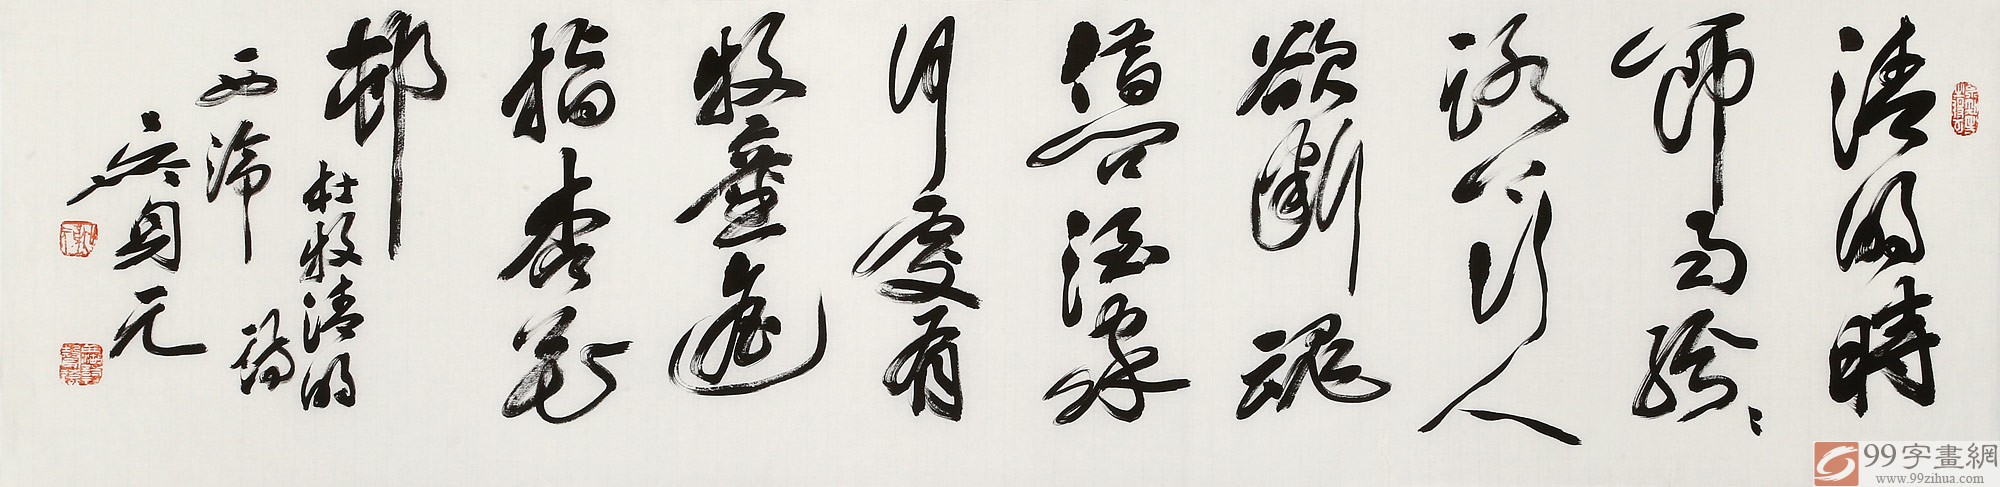 清明時
節雨紛〻
路上行人
欲斷魂
借問酒家
何處有
牧童遙
指杏花
邨
杜牧清明
詩
西泠
元
99字畫網
www.99zihua.com